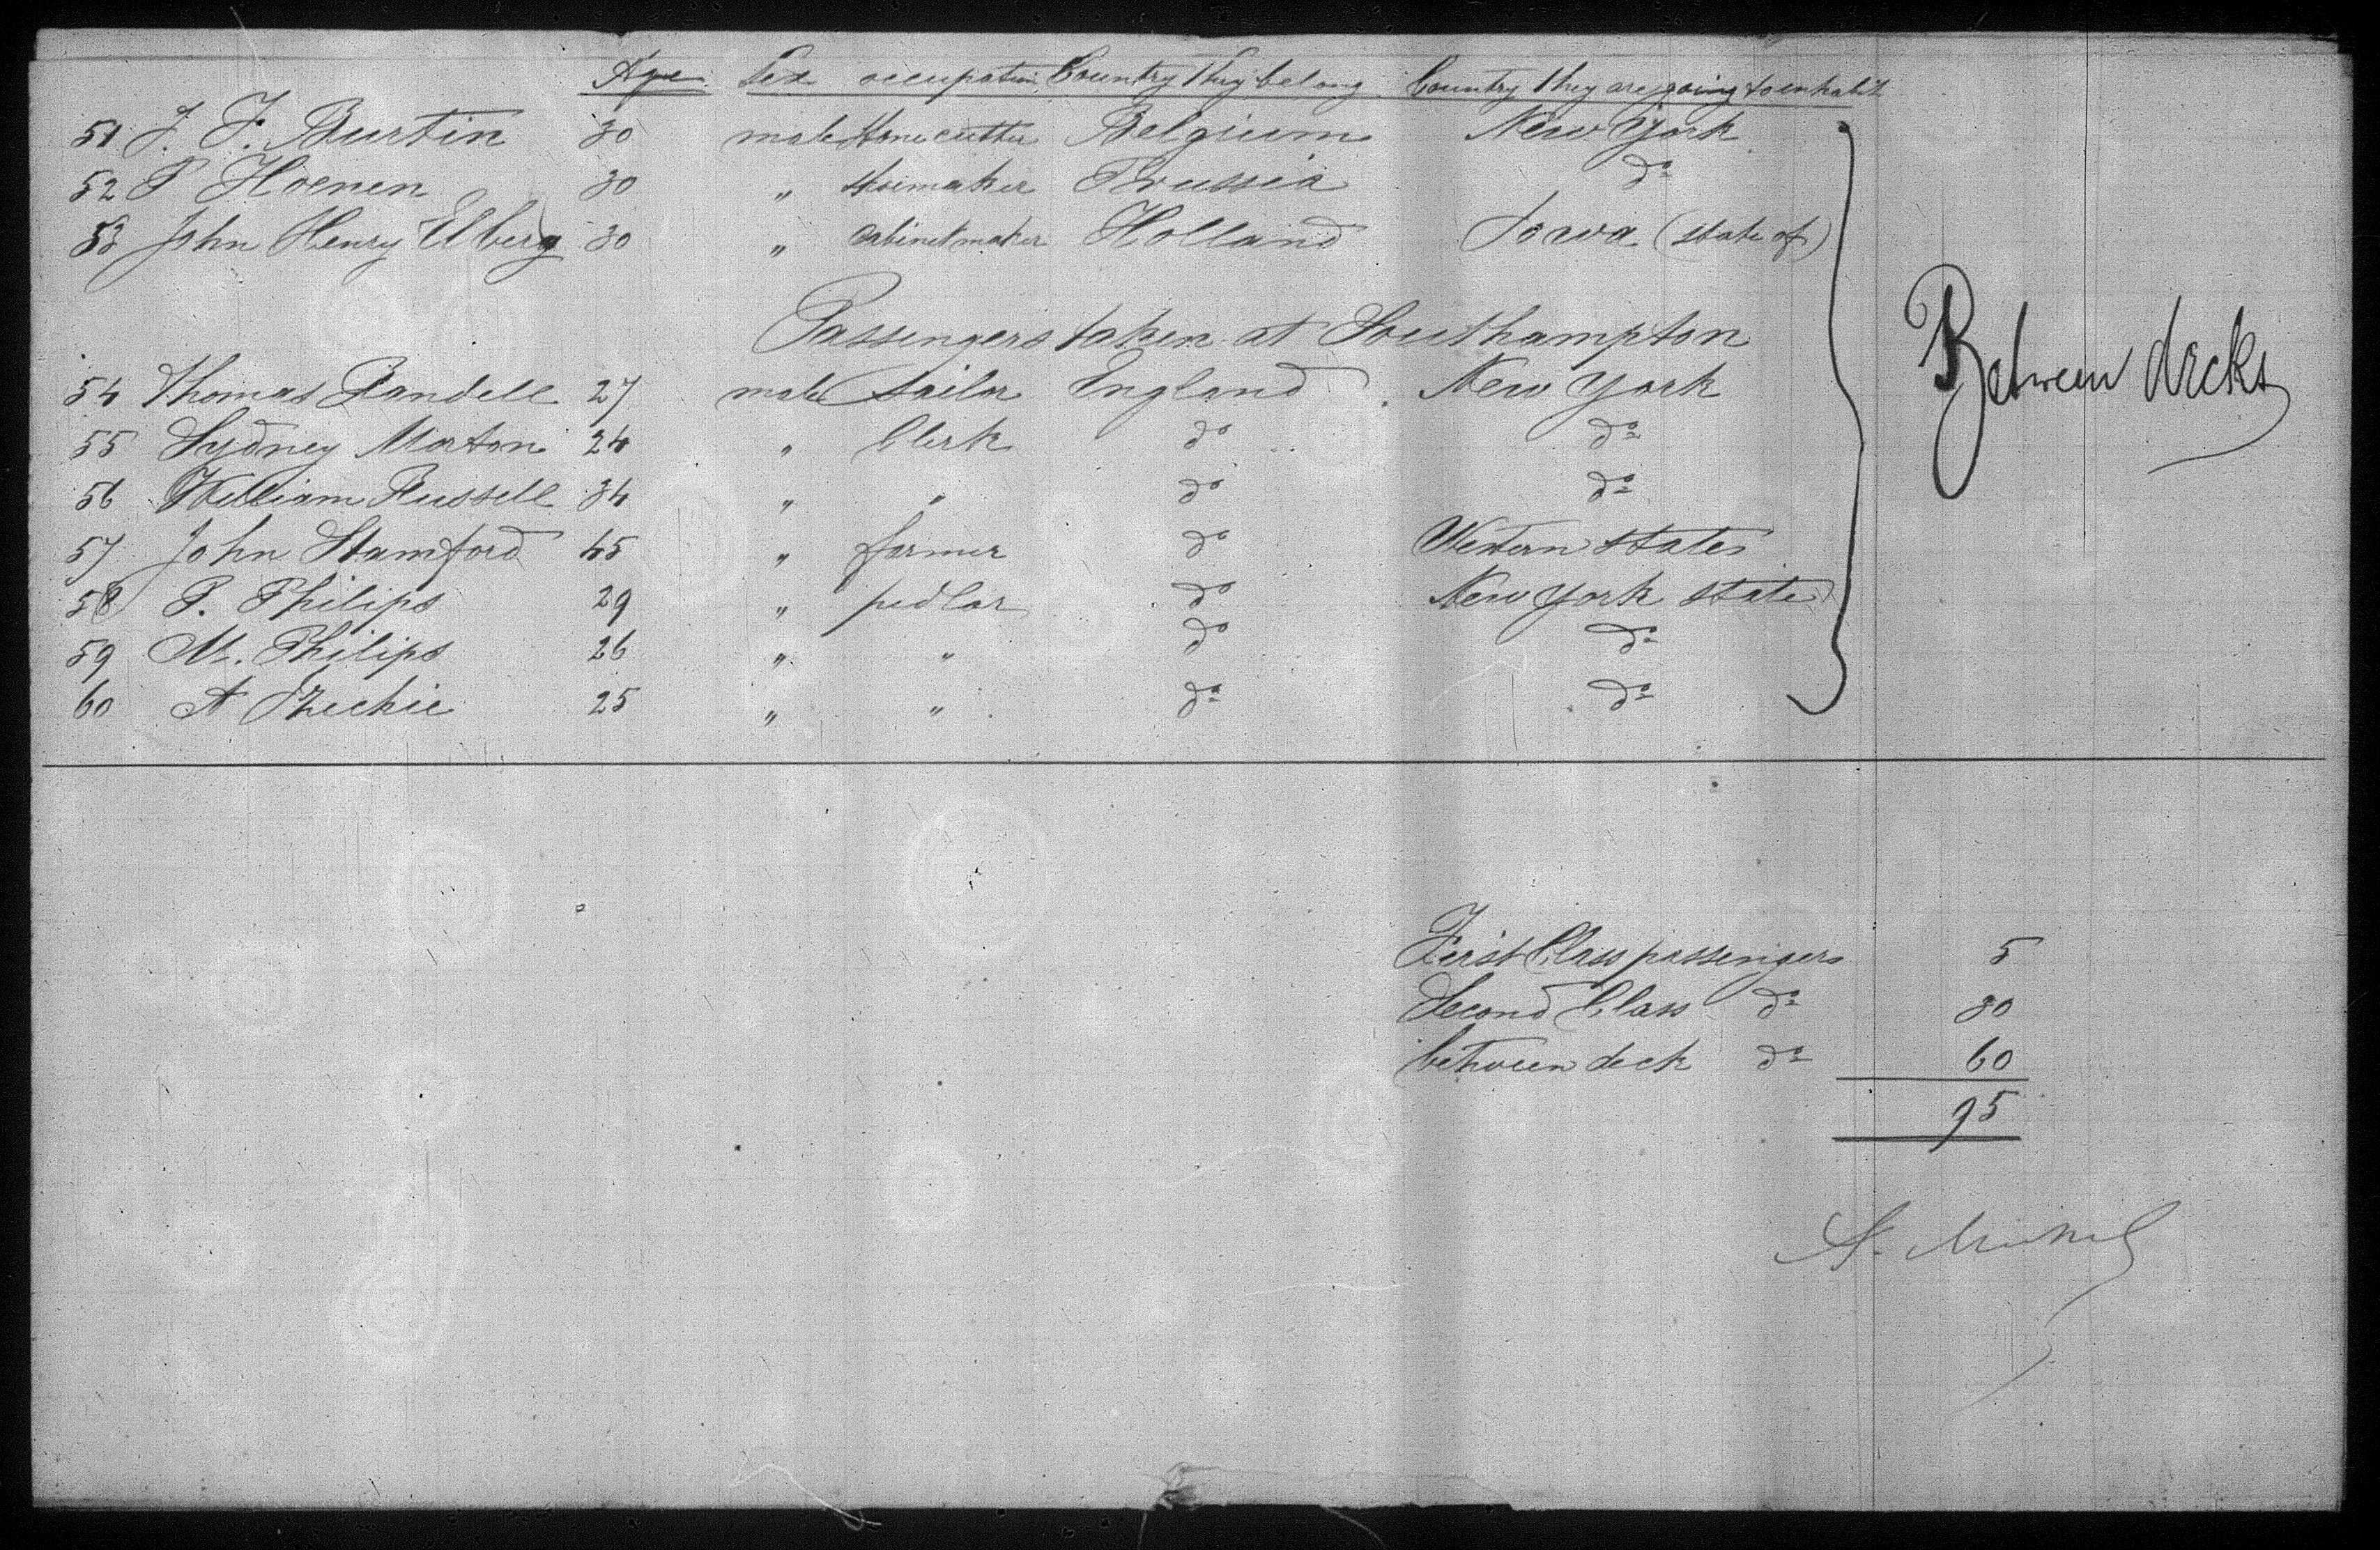 Age Sex occupation Country they belong Country they are going to inhabit
51 J. F. Burtin 30 male Stone cutter Belgium New York
52 P Hoenen 30 " shoemaker Prussia do
53 John Henry Elberg 30 " Cabinetmaker Holland Iowa (state of)
Passengers taken at Southampton
54 Thomas Randell 27 male Sailor England New York
55 Sydney Morton 24 " Clerk do do
56 William Russell 34 " " do do
57 John Stamford 45 " farmer do Western States
58 P. Philips 29 " pedlar do New York State
59 M. Philips 26 " " do do
60 A 25 " " do do
Between decks
First Class passengers 5
Second Class do 30
between deck do 60
95
A.